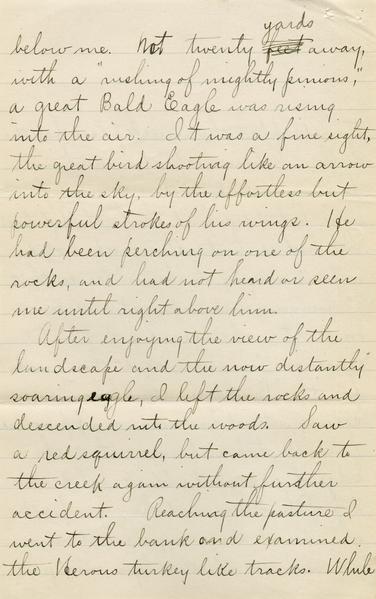 yards
below me. Not twenty feet away,
with a "rushing of mightly pinions,"
a great Bald Eagle was rising
into the air. It was a fine sight,
the great bird shooting like an arrow
into the sky, by the effortless but
powerful strokes of his wings. He
had been perching on one of the
rocks, and had not heard or seen
me until right above him.
After enjoying the view of the
landscape and the now distantly
soaring eagle, I left the rocks and
descended into the woods. Saw
a red squirrel, but came back to
the creek again without further
accident. Reaching the pasture I
went to the bank and examined
the Herons turkey like tracks. While